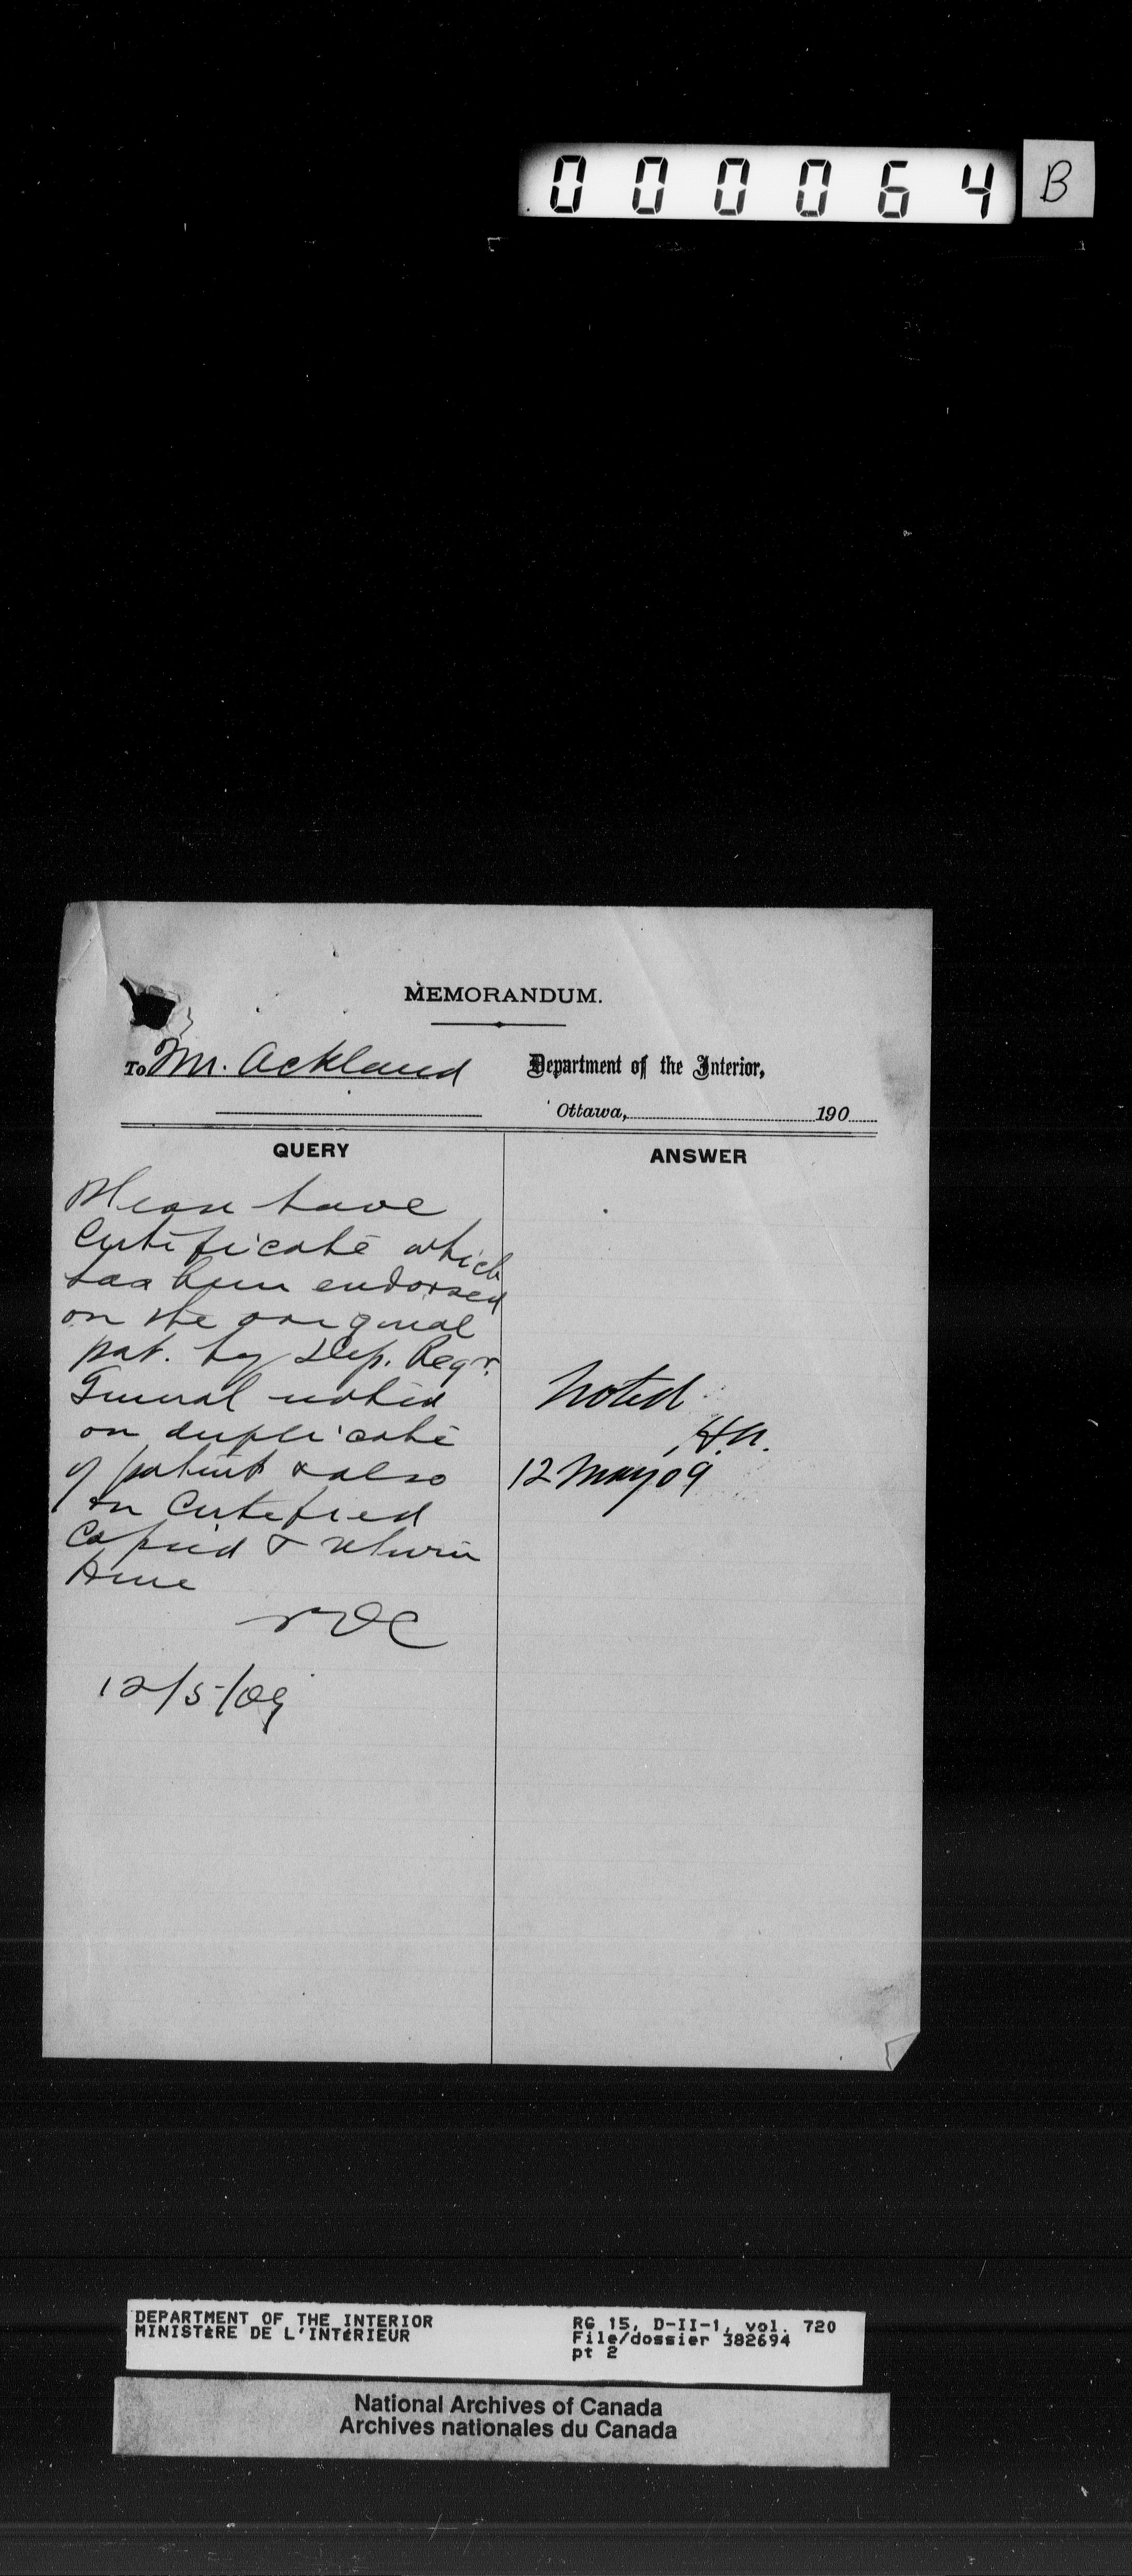 000064 B
MEMORANDUM.
To Mr. Ackland
Department of the Interior,
Ottawa, 190
QUERY
Please have
Certificate which
has been endorsed
on the original
pat. by Dep. Regr.
General noted
on duplicate
of patent & also
on Certified
Copied & return
here
12/5/09
ANSWER
Noted
H.A.
12 May 09
DEPARTMENT OF THE INTERIOR
MINISTÈRE DE L'INTÉRIEUR
RG 15, D-II-1, vol. 720
File/dossier 382694
pt 2
National Archives of Canada
Archives nationales du Canada